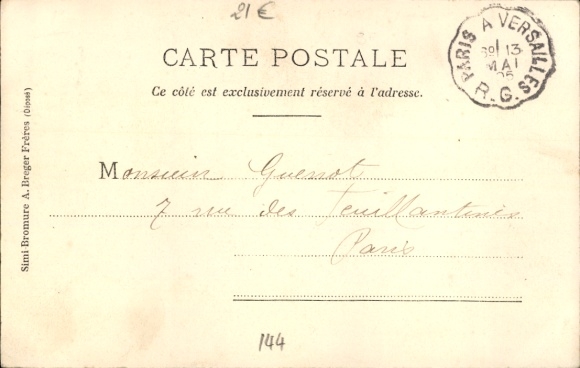 21 €
CARTE POSTALE
Ce côté est exclusivement réservé à l'adresse.
PARIS A VERSAILLES
13
MAI
R.G.
Monsieur Guenot
7 rue des Feuillantines
Paris
Simi-Bromure A. Breger Frères (Déposé)
144